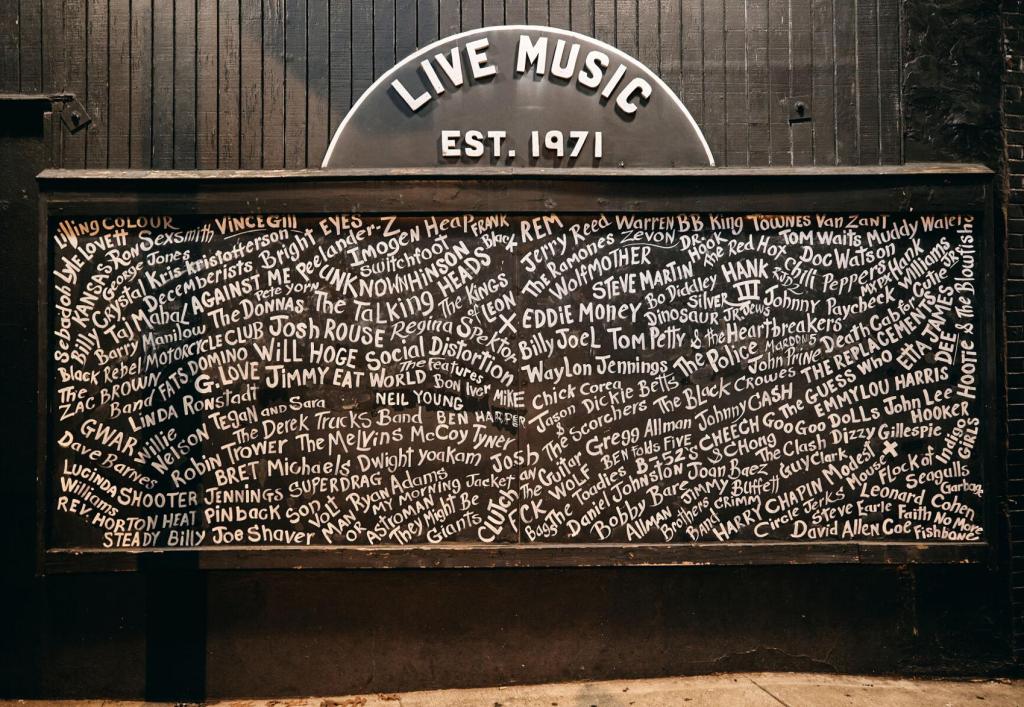 LIVE MUSIC
EST. 1971
Living COLOUR
VINCE Gill
EYES
Lyle Lovett
Ron Sexsmith
Sebadoh
KANSAS
George Jones
Kris Kristofferson
Bright EYES
Peelander-Z
Imogen Heap
FRANK Black
Billy
Crystal
Decemberists
Switchfoot
UNKNOWN HINSON
Taj Mahal
AGAINST ME
Pete Yorn
The Talking HEADS
Barry Manilow
The DONNAS
The KINGS OF LEON
Black Rebel MOTORCYCLE CLUB
Josh ROUSE
Regina Spektor
ZAC BROWN Band
FATS DOMINO
WiLL HOGE
Social Distortion
G. LOVE
JIMMY EAT WORLD
The Features
Bon Iver
MIKE
LINDA Ronstadt
NEIL YOUNG
GWAR
Willie Nelson
Tegan and Sara
The Derek Trucks Band
BEN HARPER
Dave Barnes
Robin Trower
The Melvins
McCoy Tyner
LUCINDA Williams
BRET Michaels
Dwight Yoakam
SHOOTER JENNINGS
SUPERDRAG
Ryan Adams
My Morning Jacket
REV. HORTON HEAT
Pinback
Son Volt
MAN OR ASTROMAN
They Might Be Giants
STEADY
Billy Joe Shaver
Clutch
REM
Jerry Reed
Warren ZEVON
BB King
TOWNES Van Zant
Muddy Waters
The Ramones
DR. Hook
The Red Hot Chili Peppers
Tom Waits
Doc Watson
Wolfmother
STEVE MARTIN
HANK III
Hank Williams
Bo Diddley
Silver Jews
Johnny Paycheck
EDDIE MONEY
Dinosaur JR.
Death Cab for Cutie
Billy JoEL
Tom Petty & the Heartbreakers
MAROON 5
THE REPLACEMENTS
ETTA JAMES
Waylon Jennings
The Police
John Prine
The GUESS WHO
DEER
Hootie & The Blowfish
Chick Corea
Dickie Betts
The Black Crowes
EMMYLOU HARRIS
Jason & The Scorchers
Johnny CASH
Goo Goo DoLLS
John Lee HOOKER
Gregg Allman
CHEECH & Chong
The Clash
Dizzy Gillespie
Indigo GIRLS
Guitar WOLF
BEN FOLDS FIVE
B-52's
Joan Baez
Guy Clark
Modest Mouse
Flock of Seagulls
The Toadies
Daniel Johnston
Bobby Bare
JIMMY Buffett
HARRY CHAPIN
Leonard Cohen
Garbage
Allman Brothers Band
Circle Jerks
Steve Earle
Faith No More
David Allen Coe
Fishbone